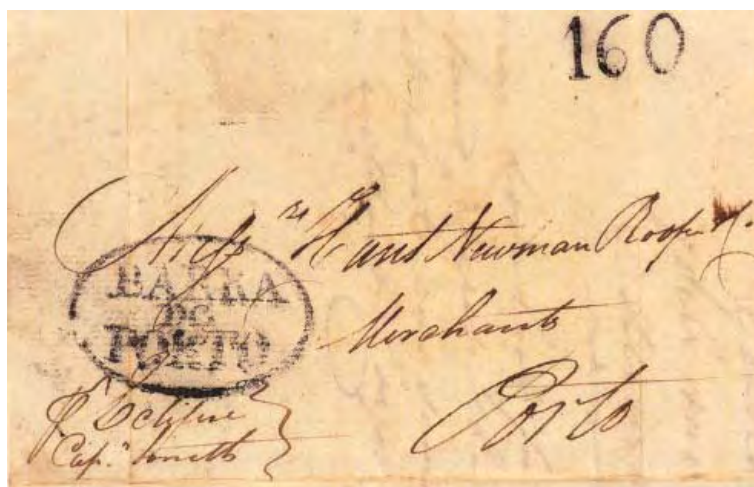 160
Mess.rs Hunt Newman Roope & Co.
BARRA
DO
PORTO
Merchants
Porto
p Eclipse
Cap.n Smith